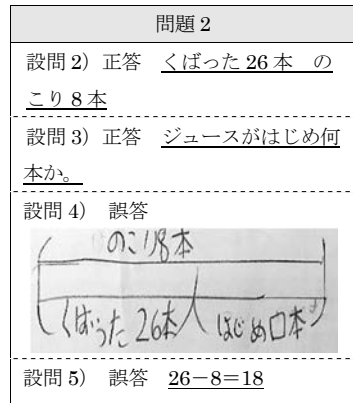 問題 2
設問 2）正答　くばった 26 本　の
こり 8 本
設問 3）正答　ジュースがはじめ何
本か。
設問 4）　誤答
のこり8本
くばった 26本　はじめ口本
設問 5）　誤答　26－8＝18